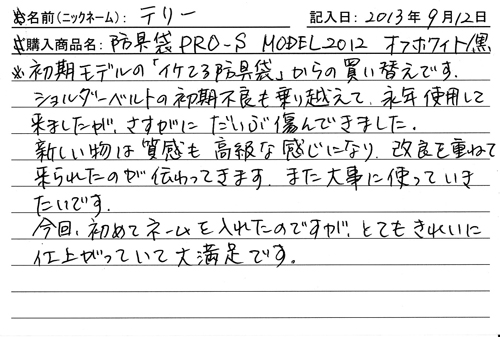 ※お名前(ニックネーム): テリー 記入日: 2013年9月12日
※購入商品名: 防具袋PRO-S MODEL2012 オフホワイト/黒
※初期モデルの「イケてる防具袋」からの買い替えです。
ショルダーベルトの初期不良も乗り越えて、永年使用して
来ましたが、さすがに だいぶ傷んできました。
新しい物は質感も高級な感じになり、改良を重ねて
来られたのが伝わってきます。また大事に使っていき
たいです。
今回、初めてネームを入れたのですが、とてもきれいに
仕上がっていて大満足です。